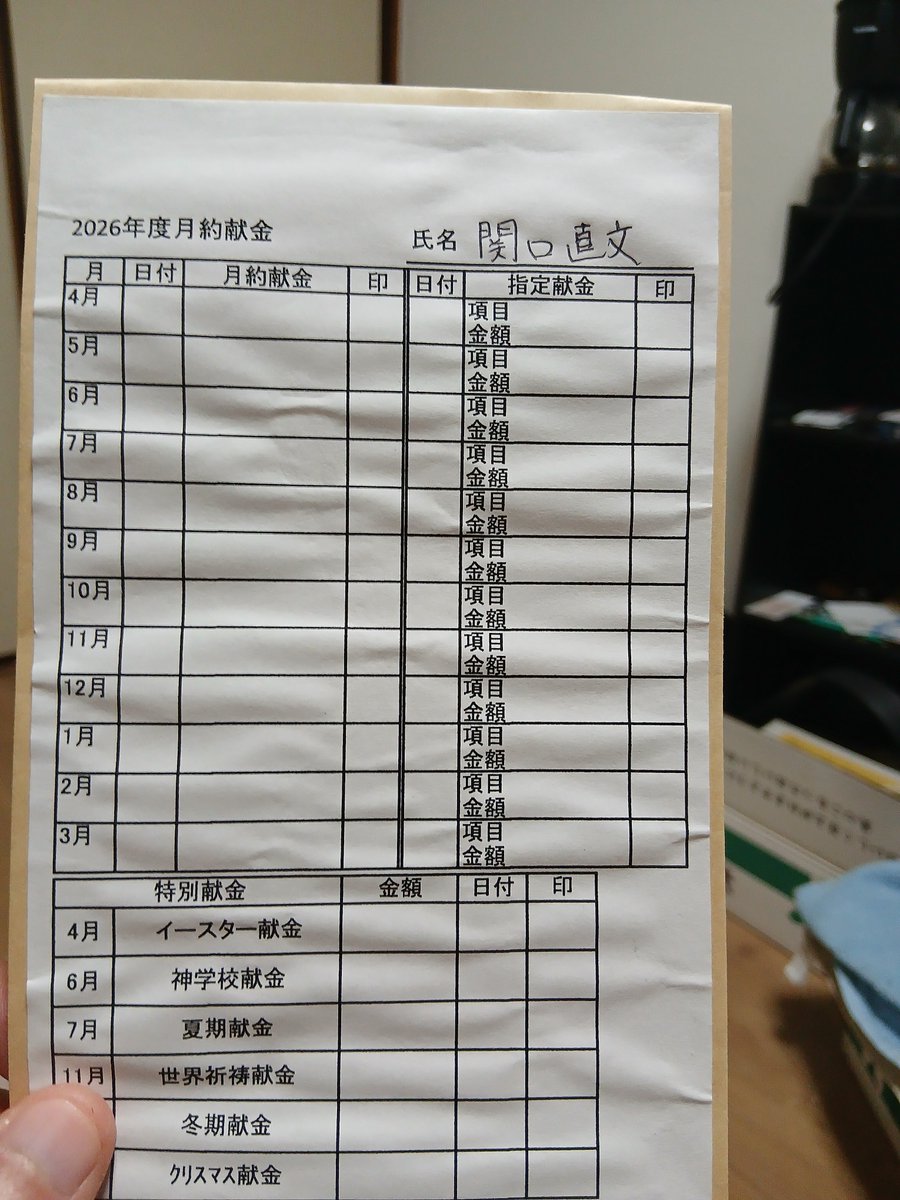 2026年度月約献金 氏名 関口直文
月 日付 月約献金 印 日付 指定献金 印
4月 項目
金額
5月 項目
金額
6月 項目
金額
7月 項目
金額
8月 項目
金額
9月 項目
金額
10月 項目
金額
11月 項目
金額
12月 項目
金額
1月 項目
金額
2月 項目
金額
3月 項目
金額
特別献金 金額 日付 印
4月 イースター献金
6月 神学校献金
7月 夏期献金
11月 世界祈祷献金
冬期献金
クリスマス献金